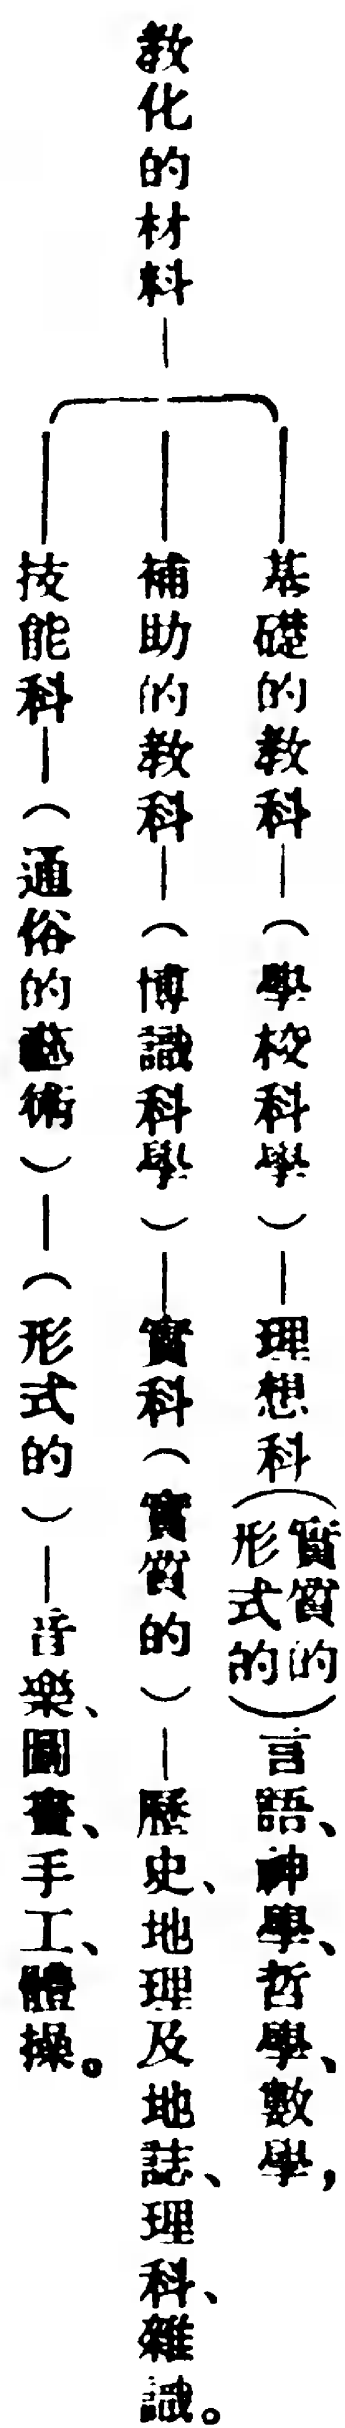 教化的材料—
基礎的教科—(學校科學)—理想科(實質的形式的)言語、神學、哲學、數學,
補助的教科—(博識科學)—實科(實質的)—歷史、地理及地誌、理科、雜識。
技能科—(通俗的藝術)—(形式的)—音樂、圖畫、手工、體操。